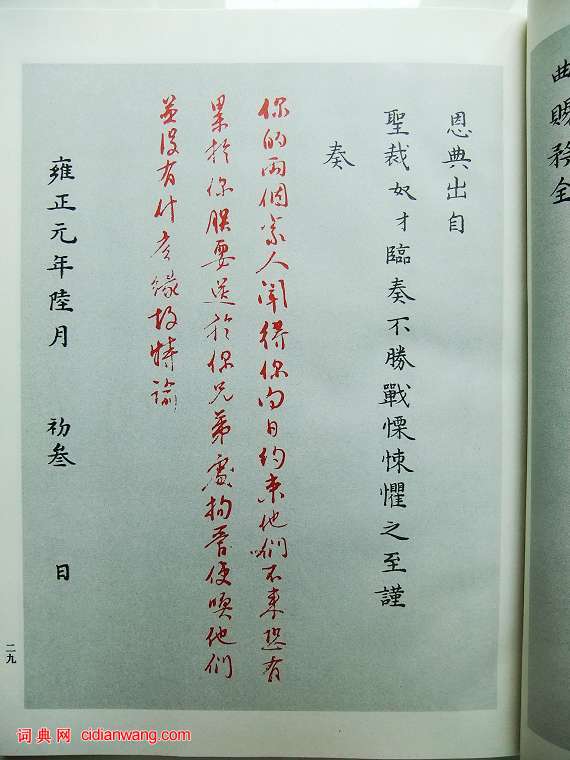 曲賜務全
恩典出自
聖裁奴才臨奏不勝戰慄悚懼之至謹
奏
你的兩個家人聞得你向日約束他們不來恐有
累於你朕要送於你兄弟處拘管使喚他們
並没有什麼緣故特諭
雍正元年陸月 初叁 日
二九
词典网 cidianwang.com